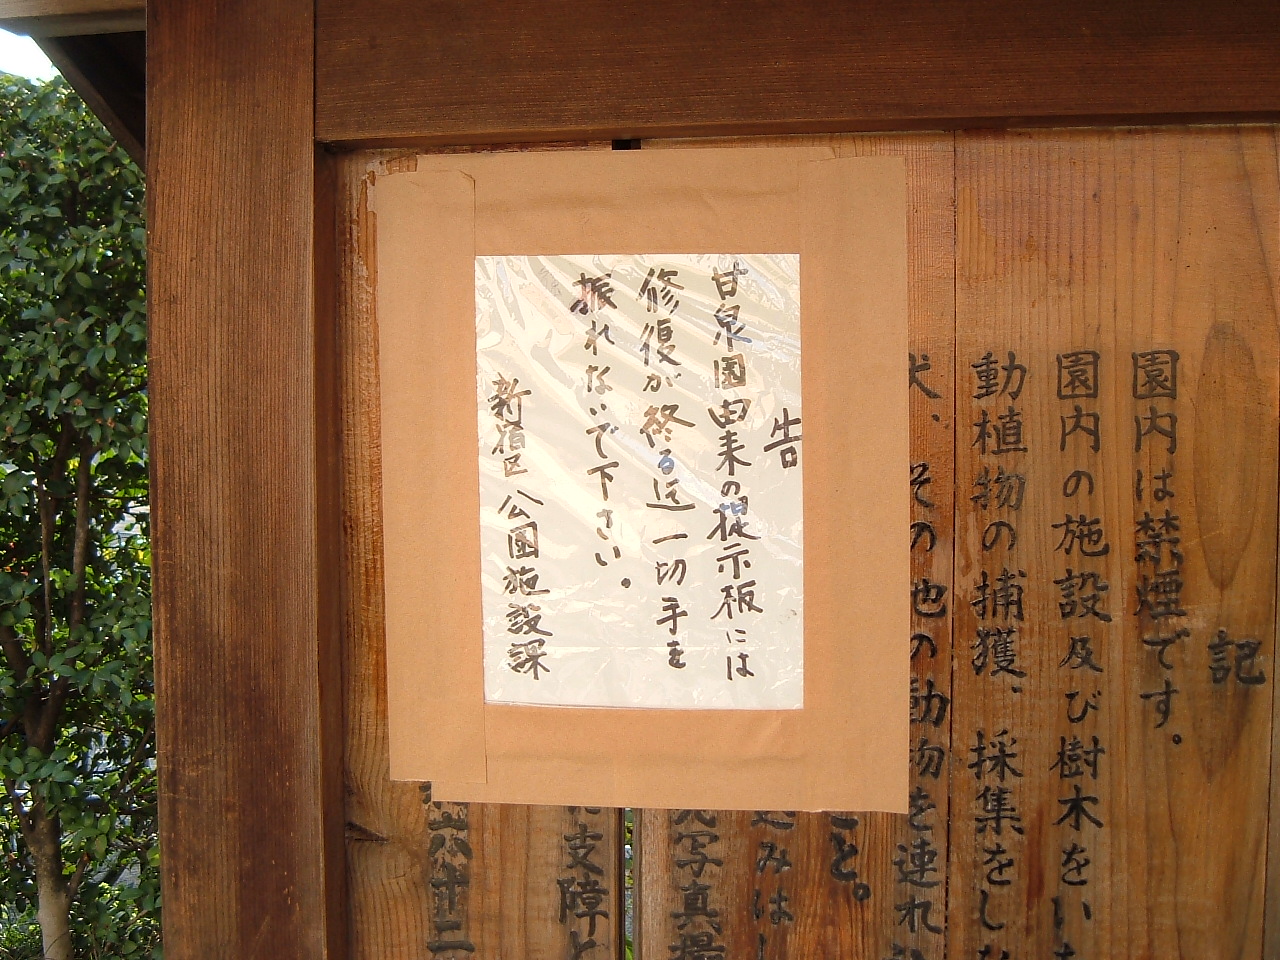 記
園内は禁煙です。
園内の施設及び樹木をい
動植物の捕獲、採集をしな
犬、その他の動物を連れ
こと。
込みは
写真撮
支障と
六十二
告
甘泉園由来の提示板には
修復が終る迄一切手を
振れないで下さい。
新宿区 公園施設課